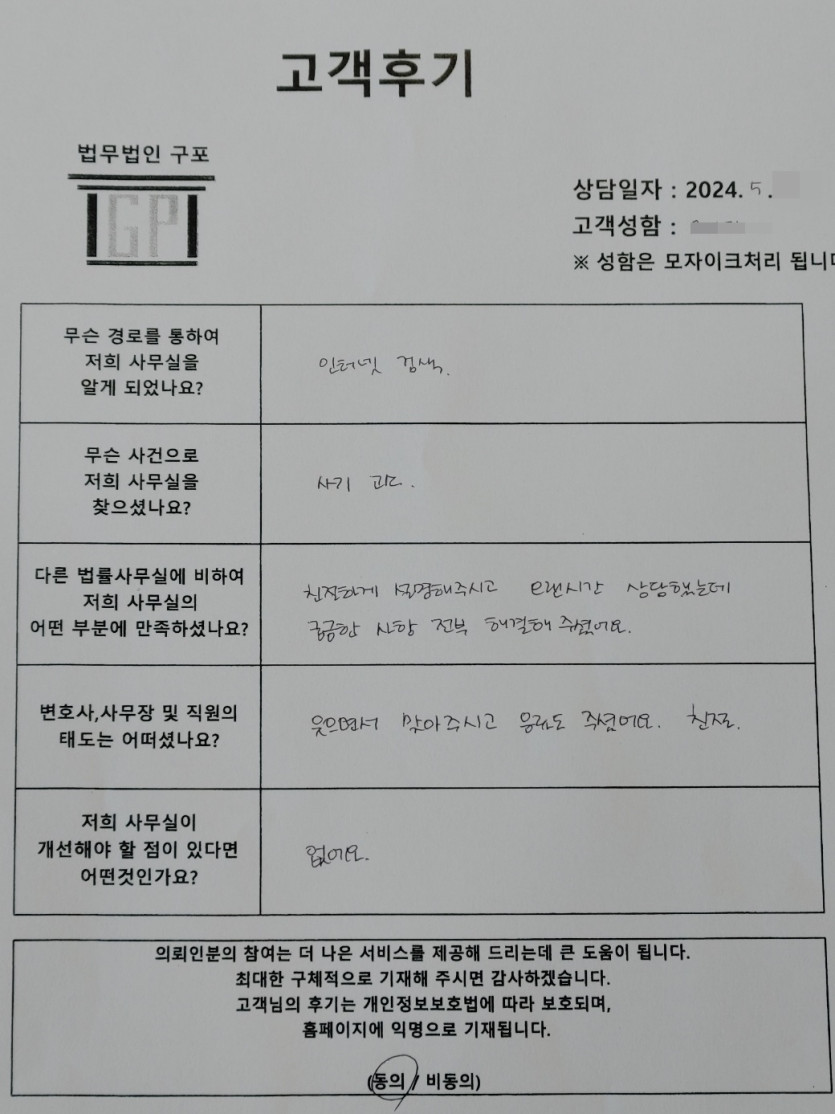 고객후기
법무법인 구포
GP
상담일자 : 2024. 5.
고객성함 :
※ 성함은 모자이크처리 됩니다
무슨 경로를 통하여
저희 사무실을
알게 되었나요?
인터넷 검색.
무슨 사건으로
저희 사무실을
찾으셨나요?
사기
다른 법률사무실에 비하여
저희 사무실의
어떤 부분에 만족하셨나요?
친절하게 설명해주시고 오랜시간 상담했는데
궁금한 사항 전부 해결해 주셨어요.
변호사,사무장 및 직원의
태도는 어떠셨나요?
웃으면서 맞아주시고 음료도 주셨어요. 친절.
저희 사무실이
개선해야 할 점이 있다면
어떤것인가요?
없어요.
의뢰인분의 참여는 더 나은 서비스를 제공해 드리는데 큰 도움이 됩니다.
최대한 구체적으로 기재해 주시면 감사하겠습니다.
고객님의 후기는 개인정보보호법에 따라 보호되며,
홈페이지에 익명으로 기재됩니다.
(동의 / 비동의)